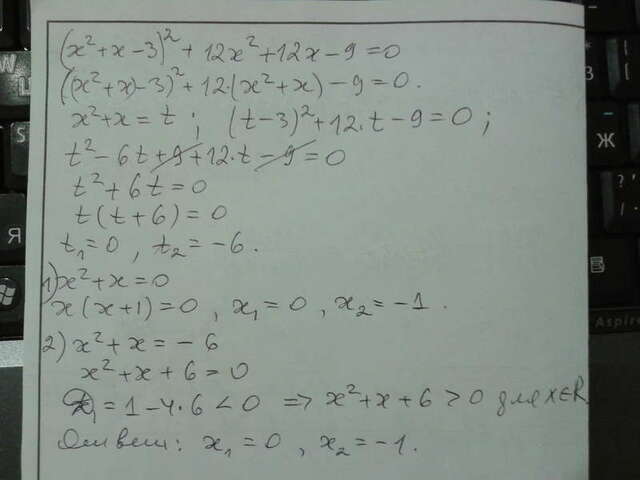 (x²+x-3)²+12x²+12x-9=0
((x²+x)-3)²+12·(x²+x)-9=0.
x²+x=t ; (t-3)²+12·t-9=0 ;
t²-6t+9+12·t-9=0
t²+6t=0
t(t+6)=0
t₁=0, t₂=-6.
1) x²+x=0
x(x+1)=0, x₁=0, x₂=-1.
2) x²+x=-6
x²+x+6=0
=1-4·6<0 => x²+x+6>0 для x∈R
Ответ: x₁=0, x₂=-1.
Я
Ж
Aspire